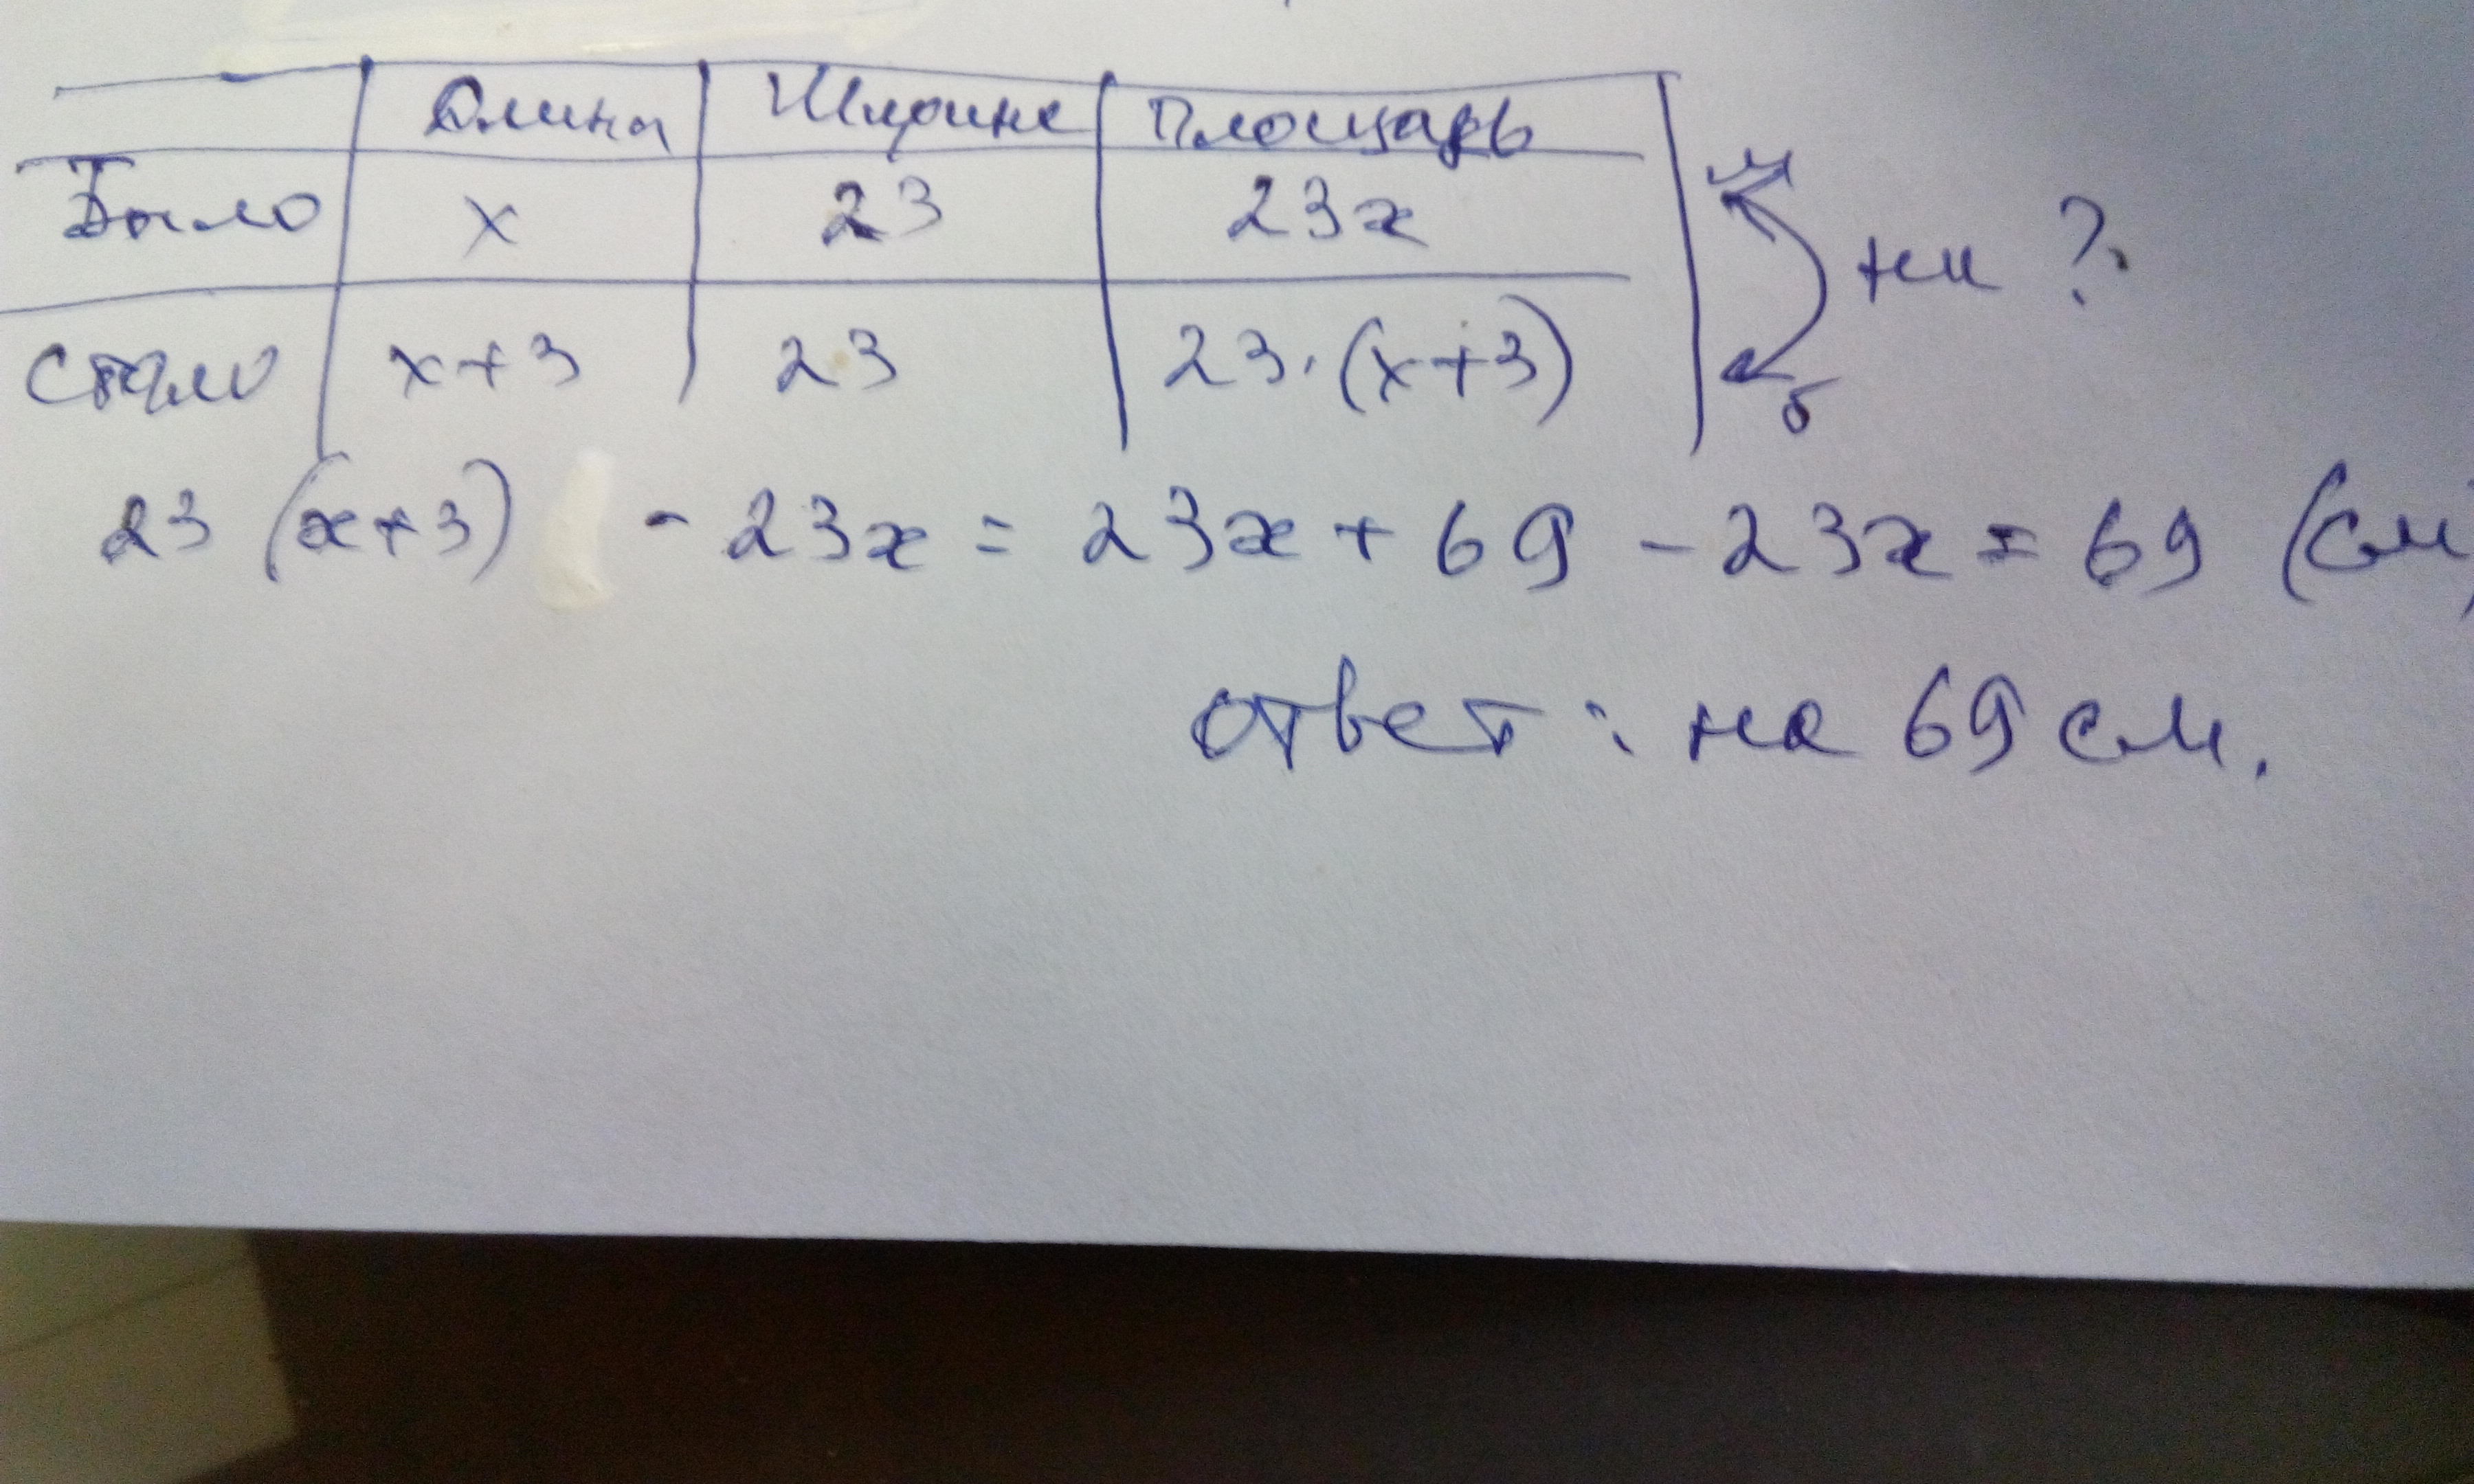 Длина Ширина Площадь
Было x 23 23x
м
на ?
Стало x+3 23 23·(x+3)
б
23 (x+3) - 23x = 23x + 69 - 23x = 69 (см)
ответ: на 69 см.